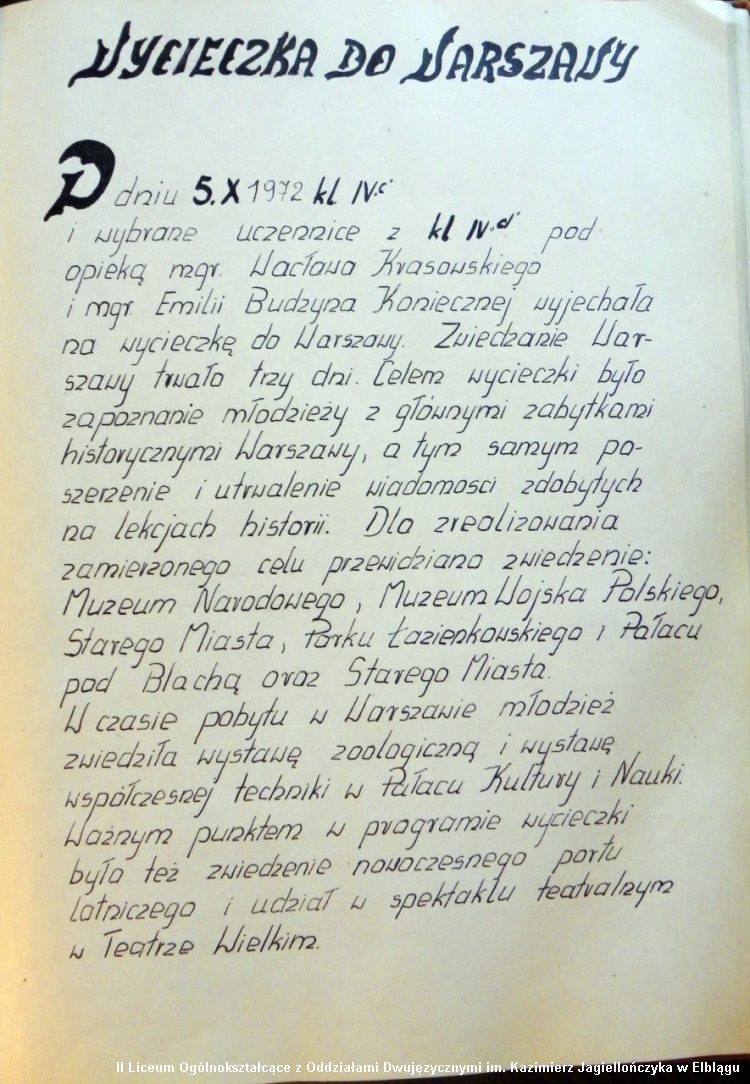 WYCIECZKA DO WARSZAWY
W dniu 5.X 1972 kl IV "c"
i wybrane uczennice z kl IV "d" pod
opieką mgr. Wacława Krasowskiego
i mgr. Emilii Budzyna Koniecznej wyjechała
na wycieczkę do Warszawy. Zwiedzanie War-
szawy trwało trzy dni. Celem wycieczki było
zapoznanie młodzieży z głównymi zabytkami
historycznymi Warszawy, a tym samym po-
szerzenie i utrwalenie wiadomosci zdobytych
na lekcjach historii. Dla zrealizowania
zamierzonego celu przewidziano zwiedzenie:
Muzeum Narodowego, Muzeum Wojska Polskiego,
Starego Miasta, Parku Łazienkowskiego i Pałacu
pod Blachą oraz Starego Miasta.
W czasie pobytu w Warszawie młodzież
zwiedziła wystawę zoologiczną i wystawę
współczesnej techniki w Pałacu Kultury i Nauki.
Ważnym punktem w programie wycieczki
było też zwiedzenie nowoczesnego portu
lotniczego i udział w spektaklu teatralnym
w Teatrze Wielkim.
II Liceum Ogólnokształcące z Oddziałami Dwujęzycznymi im. Kazimierz Jagiellończyka w Elblągu